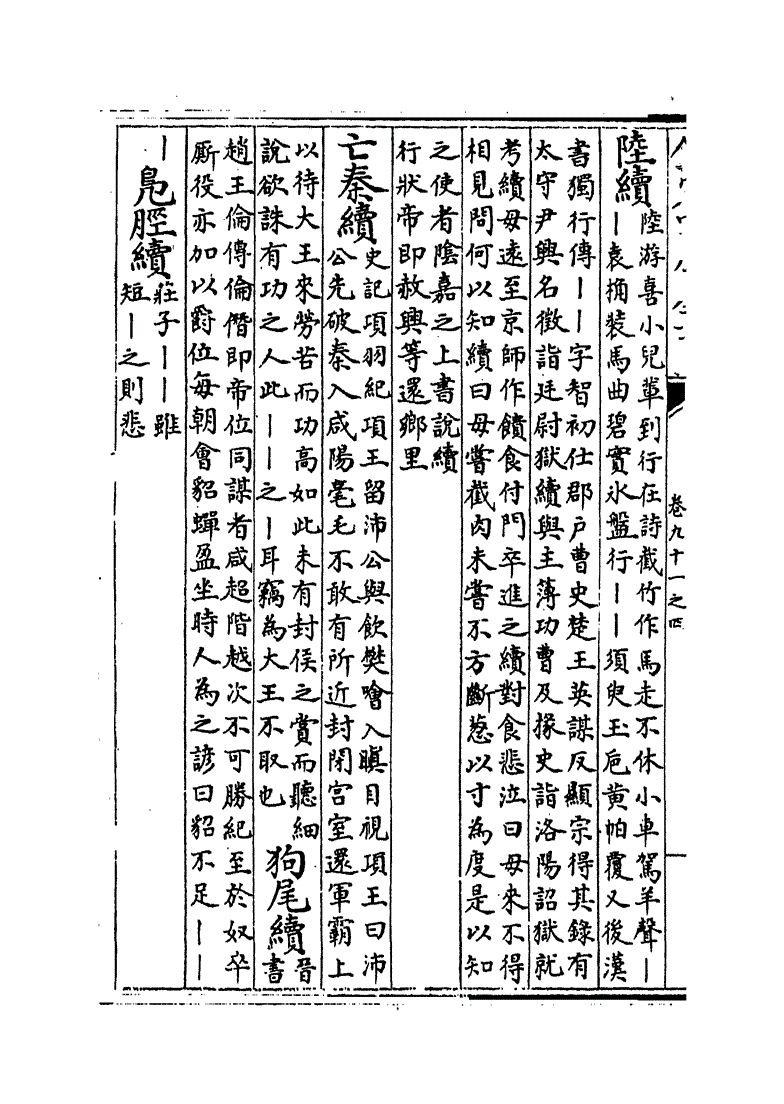 卷九十一之四
陸續
陸游喜小兒輩到行在詩截竹作馬走不休小車駕羊聲丨
丨袁桷裝馬曲碧實氷盤行丨丨須臾玉巵黄帕覆又後漢
書獨行傳丨丨字智初仕郡戶曹史楚王英謀反顯宗得其錄有
太守尹興名徵詣廷尉獄續與主薄功曹及掾史詣洛陽詔獄就
考續母遠至京師作饋食付門卒進之續對食悲泣曰母來不得
相見問何以知續曰母嘗截肉未嘗不方斷葱以寸為度是以知
之使者陰嘉之上書說續
行狀帝即赦興等還鄉里
亡秦續
史記項羽紀項王留沛公與飲樊噲入瞋目視項王曰沛
公先破秦入咸陽毫毛不敢有所近封閉宫室還軍霸上
以待大王來勞苦而功高如此未有封侯之賞而聽細
說欲誅有功之人此丨丨之丨耳竊為大王不取也
狗尾續
晉
書
趙王倫傳倫僭即帝位同謀者咸超階越次不可勝紀至於奴卒
厮役亦加以爵位每朝會貂蟬盈坐時人為之諺曰貂不足丨丨
丨
鳧脛續
莊子丨丨雖
短丨之則悲